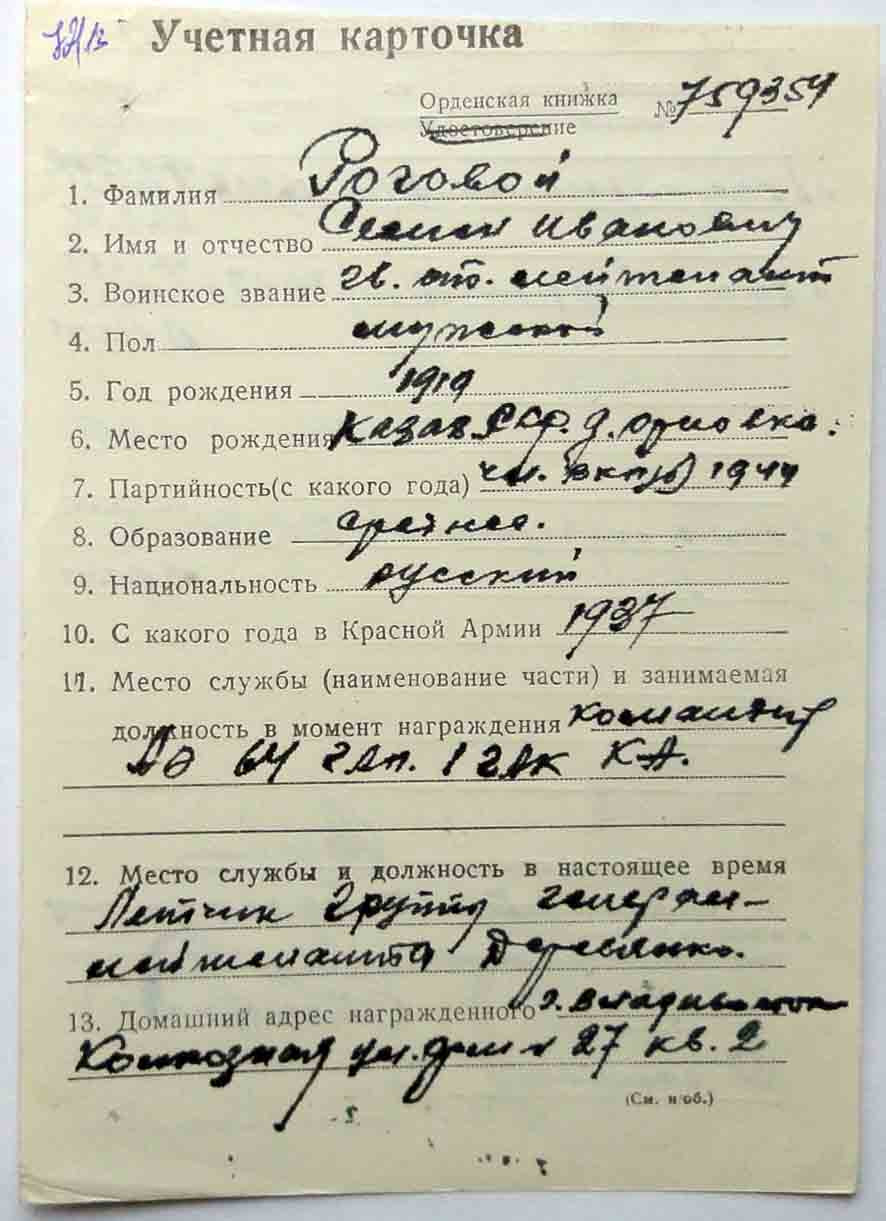 Учетная карточка
Орденская книжка
Удостоверение
№ 759354
1. Фамилия Роговой
2. Имя и отчество Семен Иванович
3. Воинское звание гв. ст. лейтенант
4. Пол мужской
5. Год рождения 1919
6. Место рождения Казах ССР. д. Орловка.
7. Партийность(с какого года) чл. ВКП(б) 1944
8. Образование среднее.
9. Национальность русский
10. С какого года в Красной Армии 1937
11. Место службы (наименование части) и занимаемая
должность в момент награждения командир
АЭ 64 гАп. 1 гАК КА.
12. Место службы и должность в настоящее время
Летчик группы генерал-
лейтенанта Деревянко.
13. Домашний адрес награжденного г. Владивосток
ул. дом № 27 кв. 2
(См. н/об.)